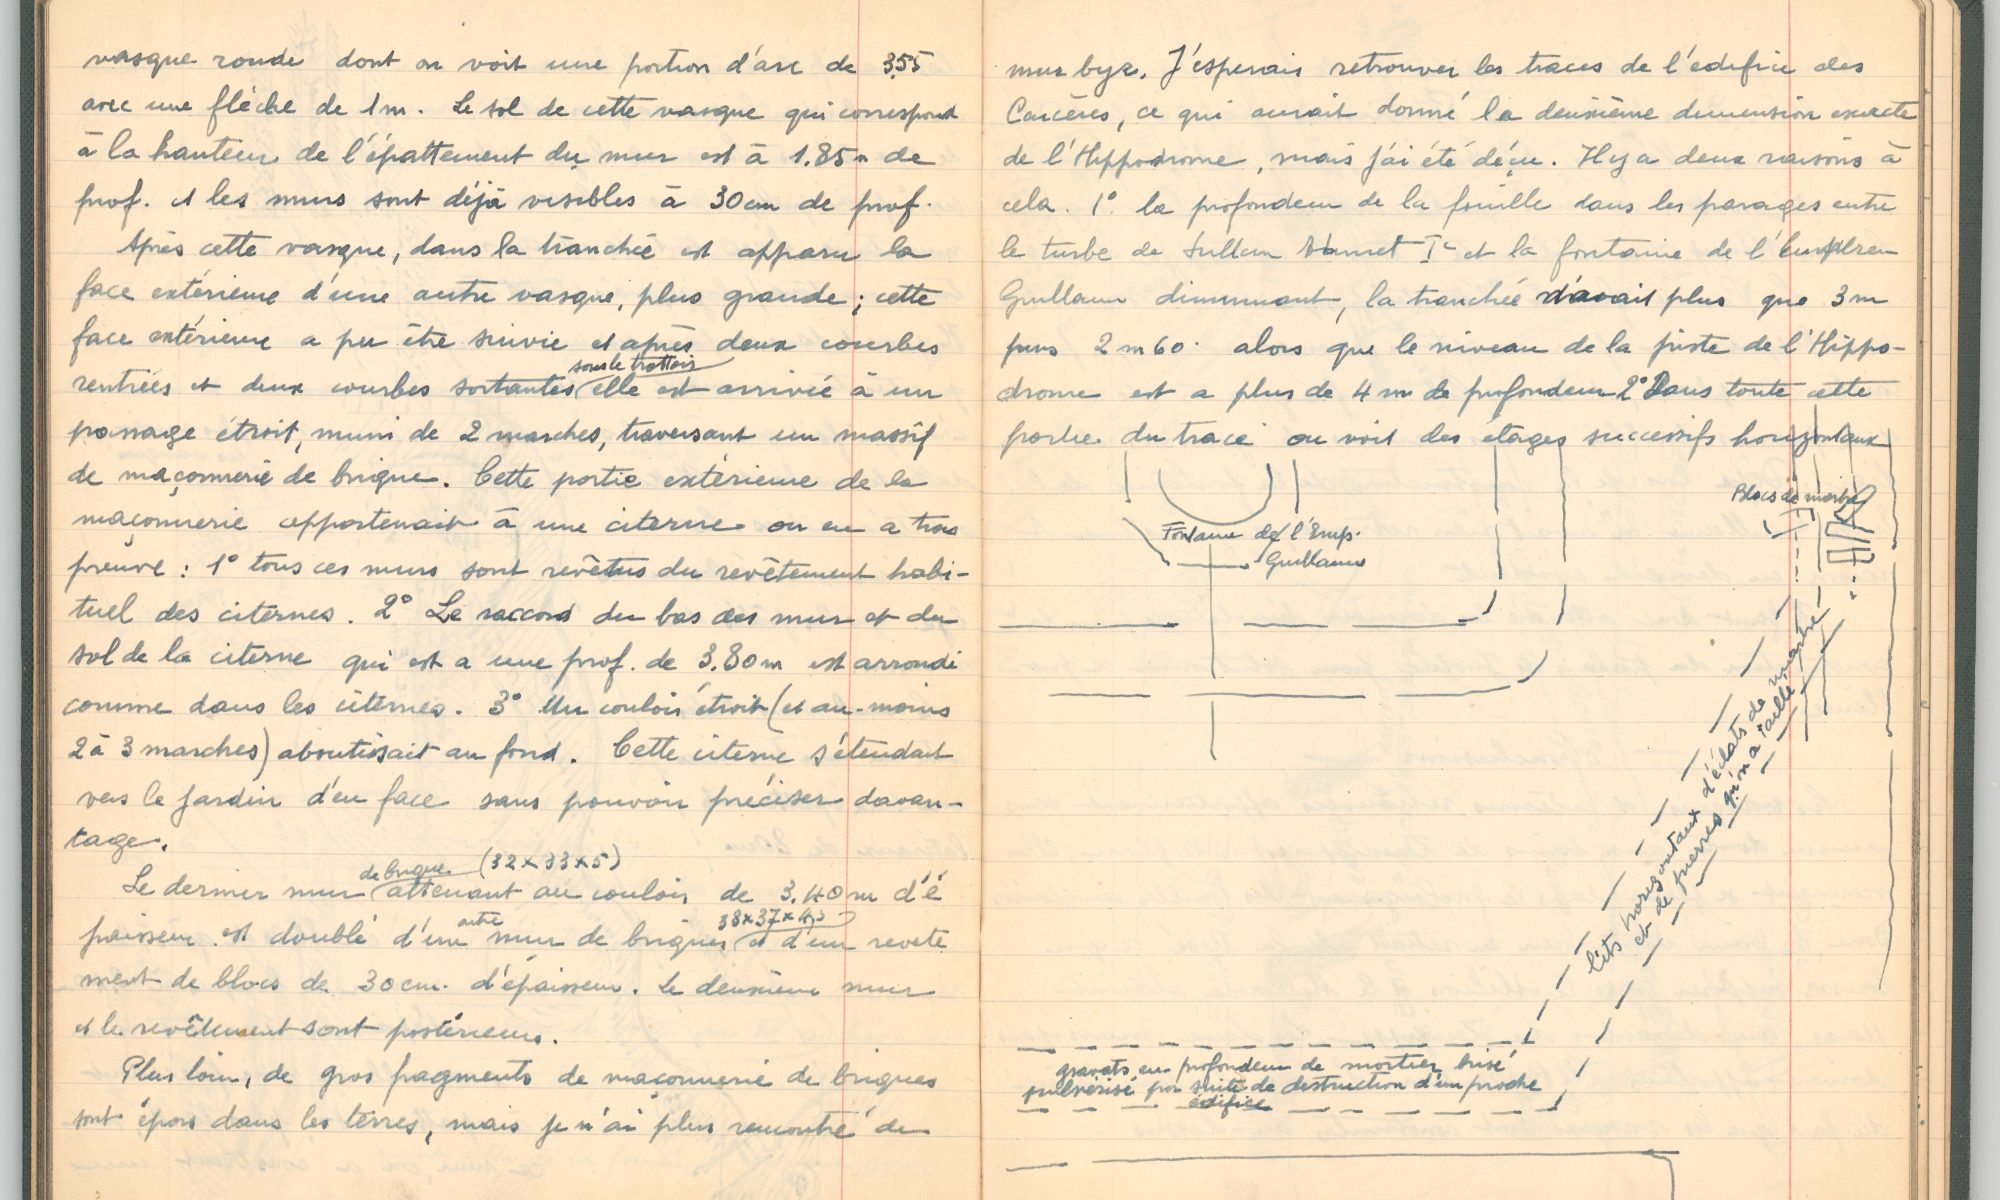 vasque ronde dont on voit une portion d'arc de 3.55
avec une flèche de 1m. Le sol de cette vasque qui correspond
à la hauteur de l'épattement du mur est à 1.85m de
prof. et les murs sont déjà visibles à 30cm de prof.
Après cette vasque, dans la tranchée est apparu la
face extérieure d'une autre vasque, plus grande; cette
face extérieure a pu être suivie et après deux courbes
sous le trottoir
rentrées et deux courbes sortantes elle est arrivée à un
passage étroit, muni de 2 marches, traversant un massif
de maçonnerie de brique. Cette partie extérieure de la
maçonnerie appartenait à une citerne on en a trois
preuve : 1° tous ces murs sont revêtus du revêtement habi-
tuel des citernes. 2° Le raccord du bas des mur et du
sol de la citerne qui est a une prof. de 3.80m est arrondi
comme dans les citernes. 3° Un couloir étroit (et au-moins
2 à 3 marches) aboutissait au fond. Cette citerne s'étendait
vers le jardin d'en face sans pouvoir préciser davan-
tage.
de brique (32x33x5)
Le dernier mur attenant au couloir de 3.40m d'é
autre 38x37x4,5
paisseur est doublé d'un mur de briques et d'un revete
ment de blocs de 30cm. d'épaisseur. Le deuxième mur
et le revêtement sont postérieurs.
Plus loin, de gros fragments de maçonnerie de briques
sont épars dans les terres, mais je n'ai plus rencontré de
mur byz. J'esperais retrouver les traces de l'édifice des
Carcères, ce qui aurait donné la deuxième dimension exacte
de l'Hippodrome, mais j'ai été déçu. Il y a deux raisons à
cela. 1°. la profondeur de la fouille dans les parages entre
le turbe de Sultan Ahmet Ier et la fontaine de l'Empereur
Guillaume diminuant, la tranchée n'avait plus que 3m
puis 2m60. alors que le niveau de la piste de l'Hippo-
drome est a plus de 4m de profondeur 2° Dans toute cette
partie du tracé on voit des étages successifs horizontaux
Blocs de marbre
Fontaine de l'Emp.
Guillaume
lits horizontaux d'éclats de marbre
et de pierres qu'on a taillé
gravats en profondeur de mortier brisé
pulvérisé par suite de destruction d'un proche
édifice